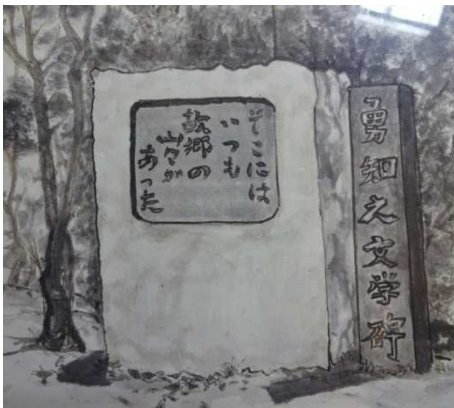 勇知之文学碑
そこには
いつも
故郷の
山々が
あった